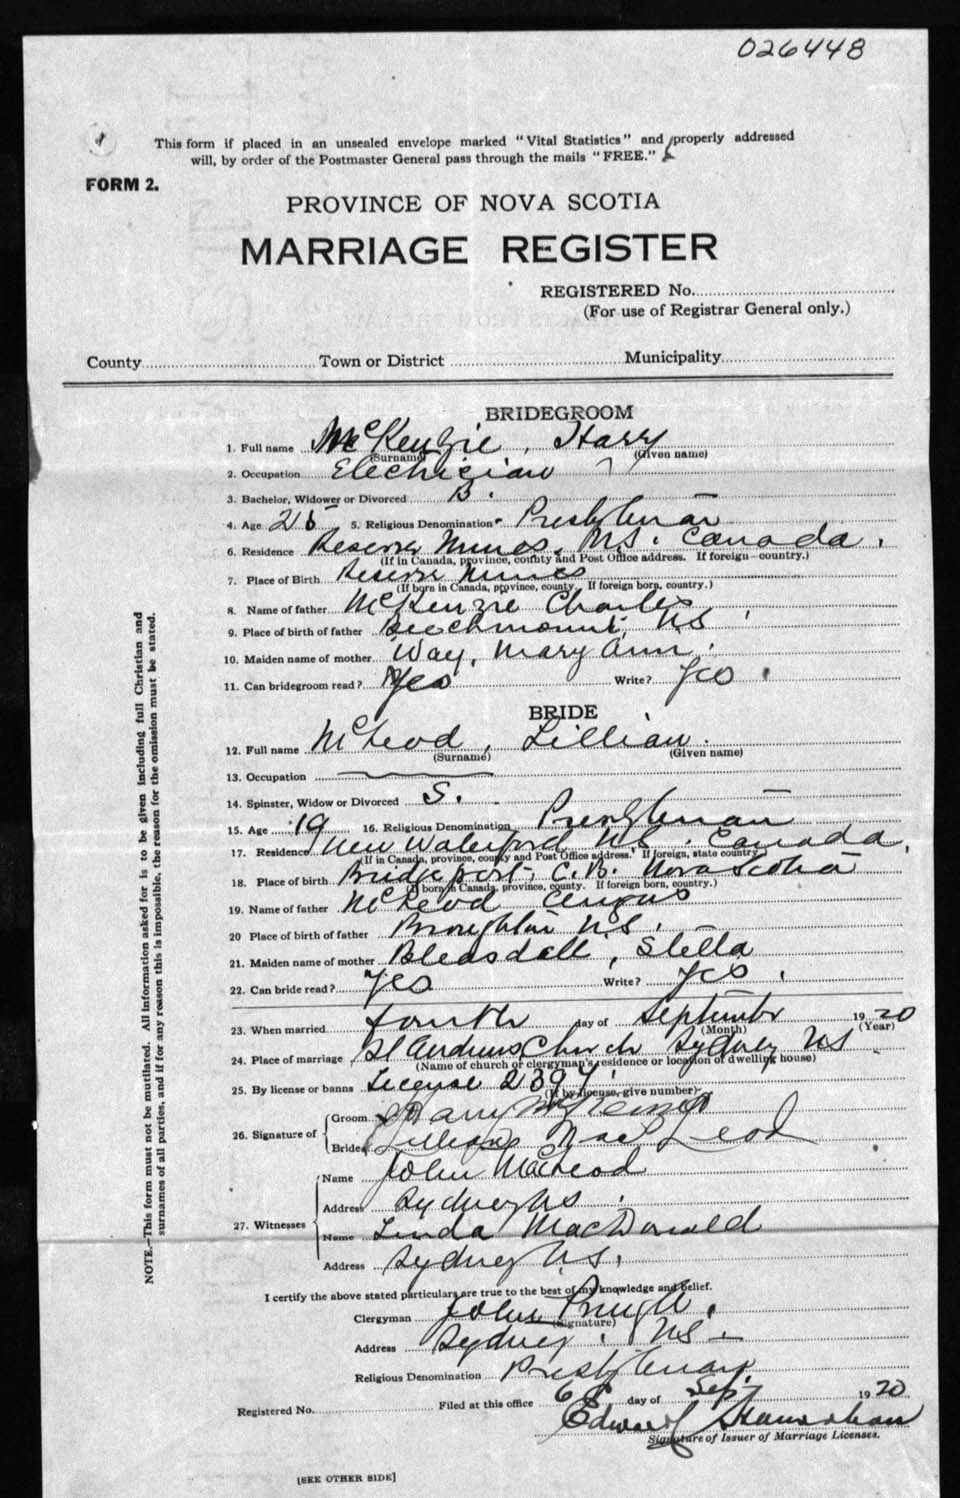 026448
This form if placed in an unsealed envelope marked "Vital Statistics" and properly addressed
will, by order of the Postmaster General pass through the mails "FREE."
FORM 2.
PROVINCE OF NOVA SCOTIA
MARRIAGE REGISTER
REGISTERED No.
(For use of Registrar General only.)
County Town or District Municipality
BRIDEGROOM
1. Full name McKenzie, Harry
(Surname) (Given name)
2. Occupation Electrician
3. Bachelor, Widower or Divorced B.
4. Age 5. Religious Denomination Presbyterian
6. Residence Reserve Mines, N.S. Canada.
(If in Canada, province, county and Post Office address. If foreign—country.)
7. Place of Birth Reserve Mines
(If born in Canada, province, county. If foreign born, country.)
8. Name of father McKenzie Charles
9. Place of birth of father Beechmount, NS
10. Maiden name of mother Way, Mary Ann.
11. Can bridegroom read? Yes Write? Yes.
BRIDE
12. Full name McLeod, Lillian.
(Surname) (Given name)
13. Occupation
14. Spinster, Widow or Divorced S.
15. Age 19 16. Religious Denomination Presbyterian
17. Residence New Waterford N.S. Canada.
(If in Canada, province, county and Post Office address. If foreign, state country)
18. Place of birth Bridgeport, C.B. Nova Scotia
(If born in Canada, province, county. If foreign born, country.)
19. Name of father McLeod Angus
20 Place of birth of father Broughton N.S.
21. Maiden name of mother Bleasdall, Stella
22. Can bride read? Yes Write? Yes.
23. When married fourth day of September 1920
(Month) (Year)
24. Place of marriage St Andrews Church Sydney NS
(Name of church or clergyman's residence or location of dwelling house)
25. By license or banns License 2397.
(If by license, give number)
26. Signature of Groom Harry McKenzie
Bride Lillian MacLeod
27. Witnesses
Name John MacLeod
Address Sydney NS.
Name Linda MacDonald
Address Sydney N.S.
I certify the above stated particulars are true to the best of my knowledge and belief.
Clergyman John Pringle.
(Signature)
Address Sydney. NS.
Religious Denomination Presbyterian
Registered No. Filed at this office 6 day of Sept 1920
Edward
Signature of Issuer of Marriage Licenses.
[SEE OTHER SIDE]
NOTE.—This form must not be mutilated. All information asked for is to be given including full Christian and
surnames of all parties, and if for any reason this is impossible, the reason for the omission must be stated.